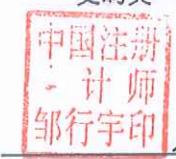 中国注册
计师
邹行宇印